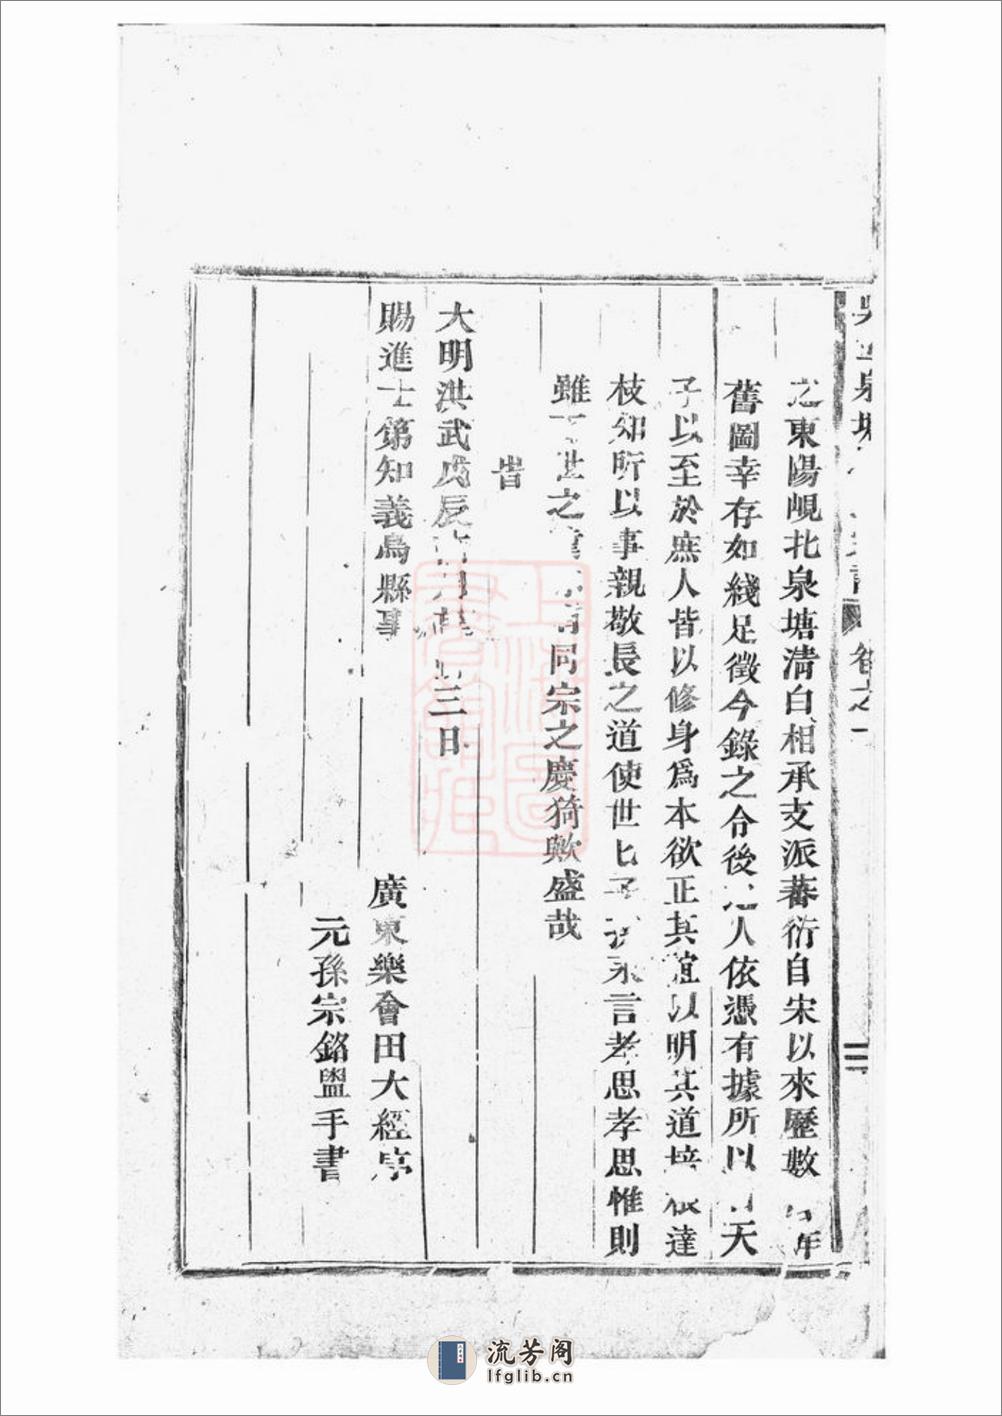 泉塘
卷之一
二
之東陽峴北泉塘清白相承支派蕃衍自宋以來歷數年
舊圖幸存如綫足徵今錄之令後之人依憑有據所以天
子以至於庶人皆以修身爲本欲正其誼以明其道培根達
枝知所以事親敬長之道使世世子永言孝思孝思惟則
雖世之同宗之慶猗歟盛哉
旹
大明洪武戊辰月三日
賜進士第知義烏縣事 廣東樂會田大經序
元孫宗銘盥手書
上海圖書館藏
流芳阁
lfglib.cn